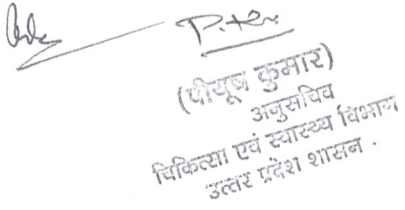 (पीयूष कुमार)
अनुसचिव
चिकित्सा एवं स्वास्थ्य विभाग
उत्तर प्रदेश शासन .